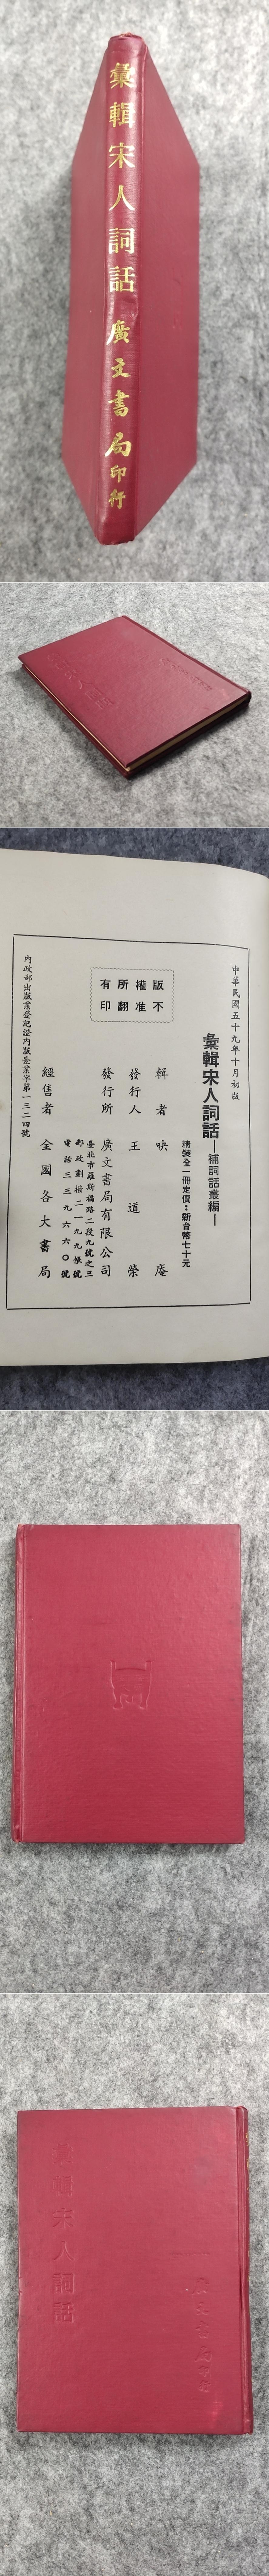 彙輯宋人詞話 廣文書局印行
中華民國五十九年十月初版
彙輯宋人詞話—補詞話叢編—
精裝全一冊定價：新台幣七十元
版權所有
不准翻印
輯者 映庵
發行人 王道榮
發行所 廣文書局有限公司
臺北市羅斯福路二段九號之三
郵政劃撥二一九九帳號
電話三三九六六〇號
經售者 全國各大書局
內政部出版業登記證內版臺業字第一三二四號
彙輯宋人詞話
廣文書局印行